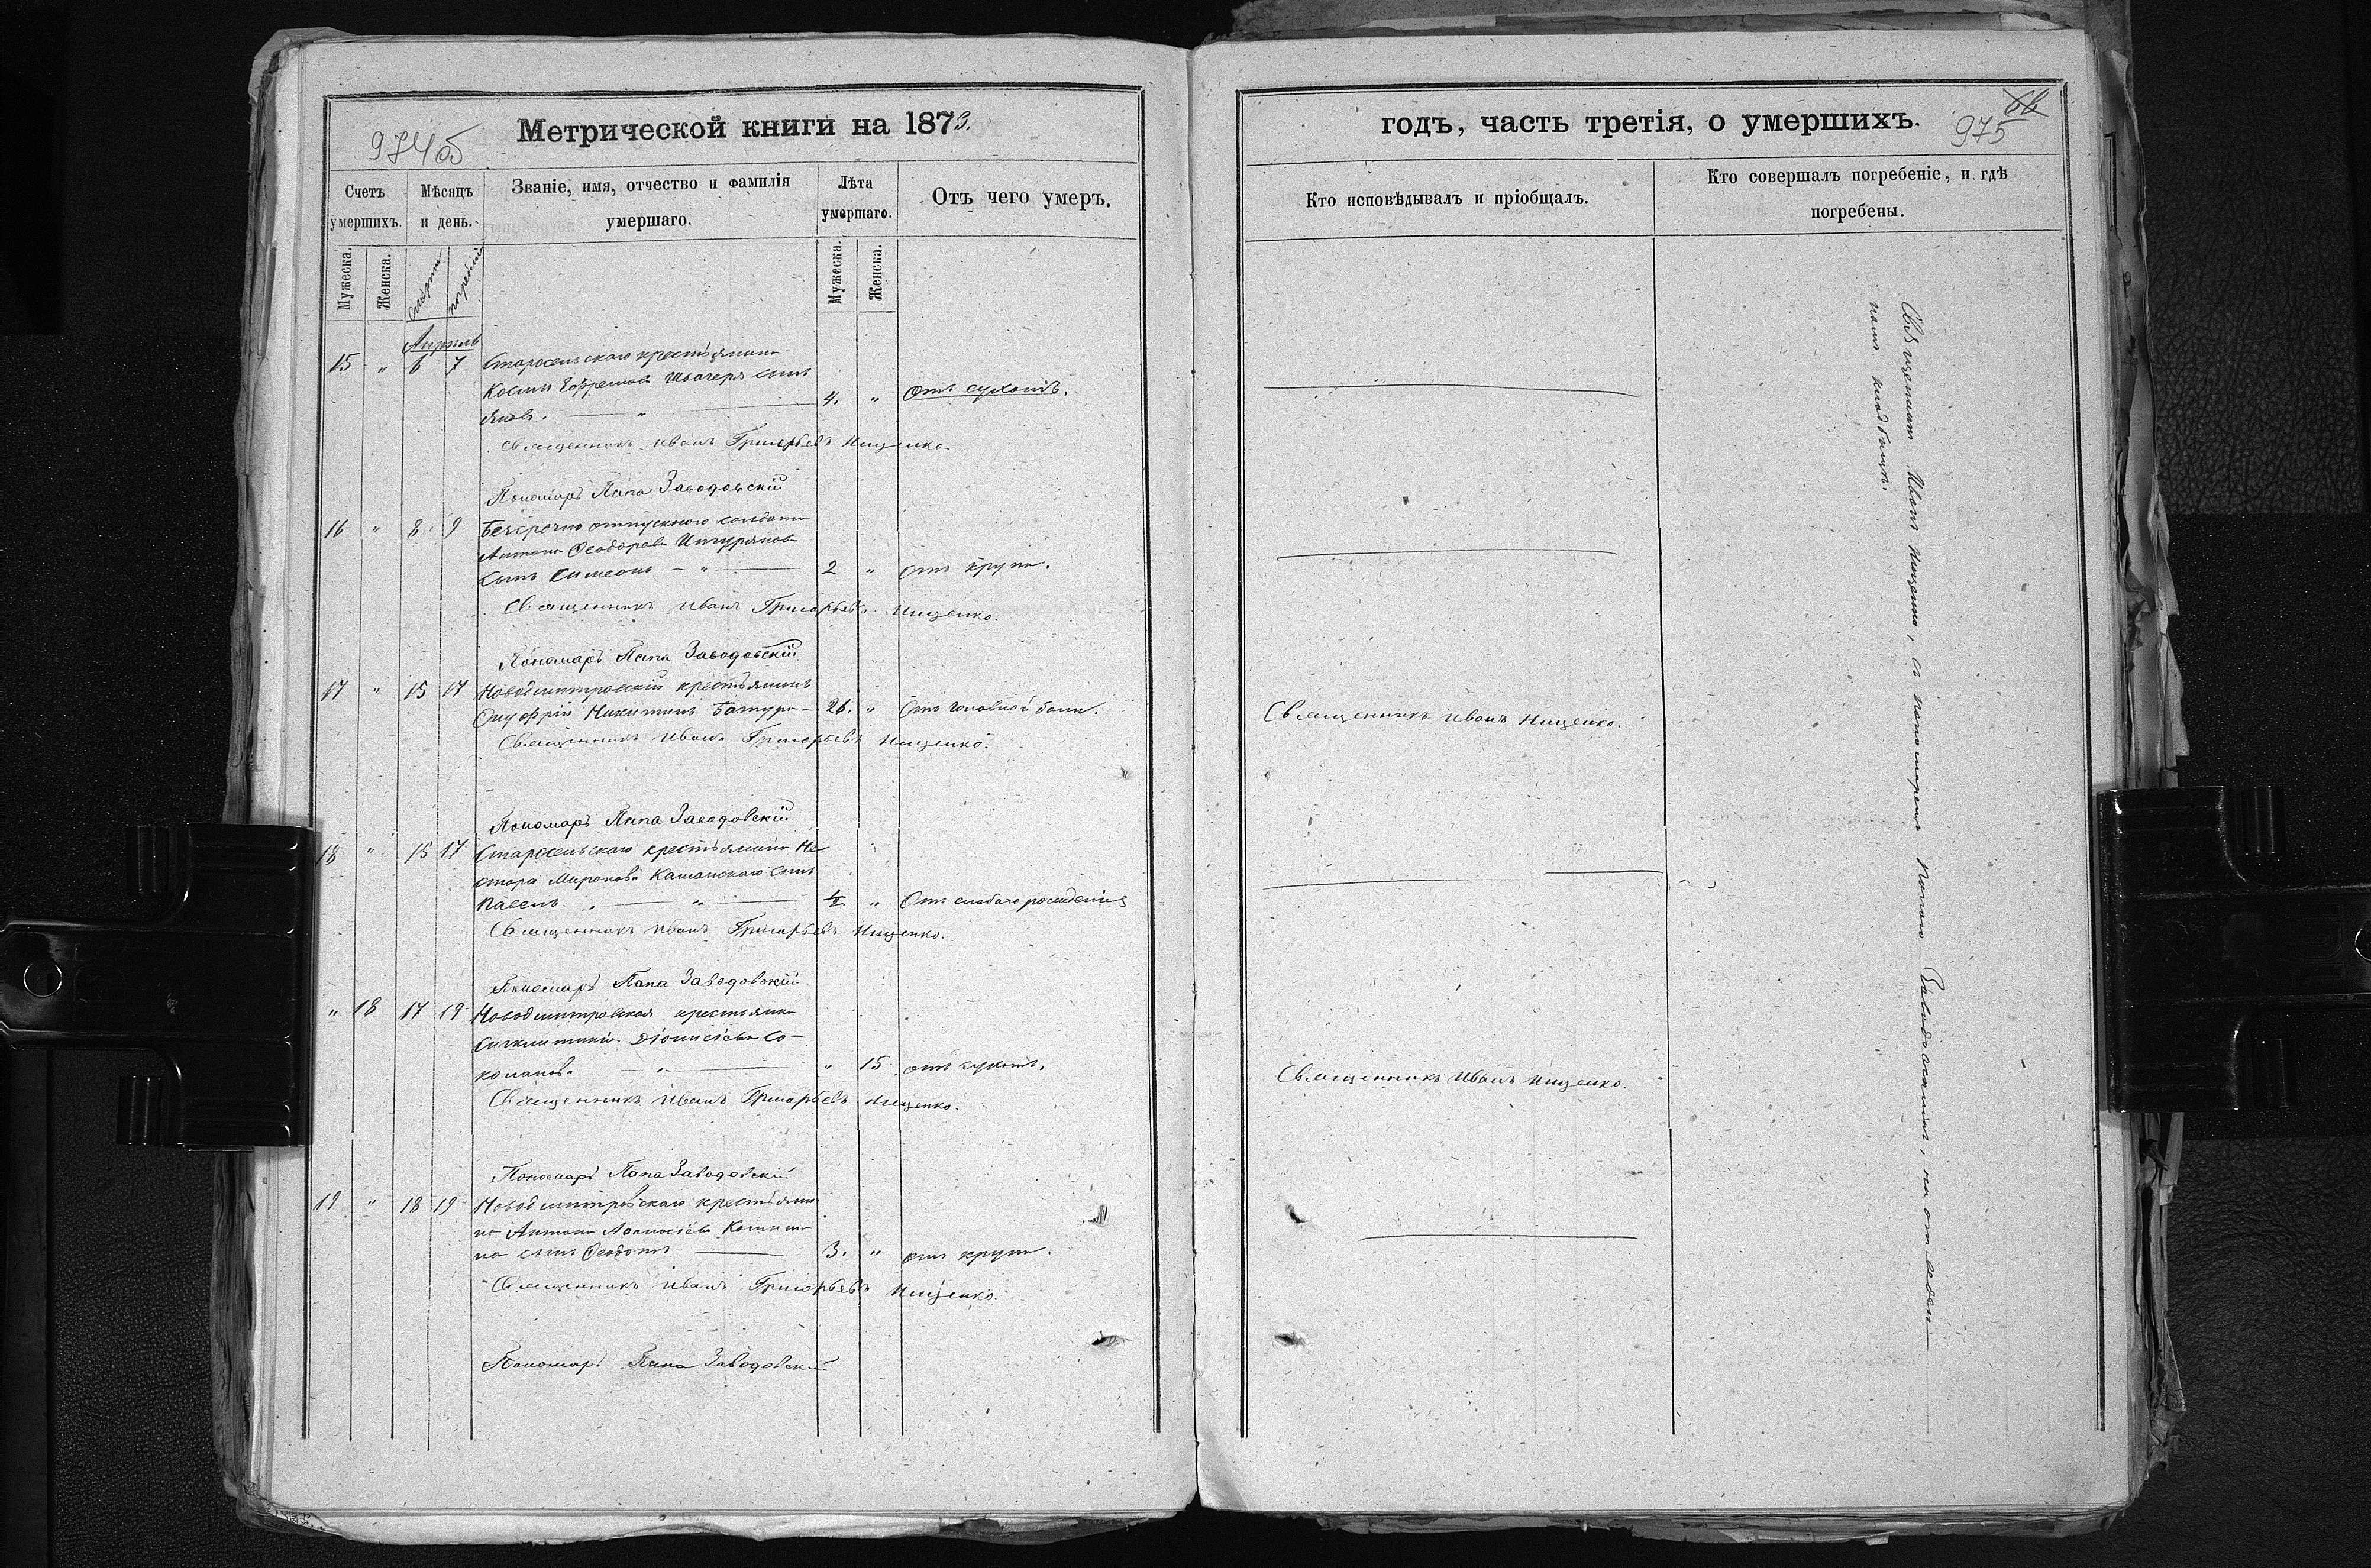 974об
Метрической книги на 1873.
Счетъ умершихъ.
Мѣсяцъ и день.
Званіе, имя, отчество и фамилія умершаго.
Лѣта умершаго.
Отъ чего умеръ.
Мужеска.
Женска.
смерти
погребенія
Мужеска.
Женска.
Апрѣль
15 " 6 7 Старосельскаго крестьянина
Космы Ефремова сынъ
Яковъ. — " — 4. " Отъ сухотъ.
Священникъ Иванъ Григорьевъ Нищенко.
Пономарь Папа Заводовскій
16 " 8 9 Безсрочно отпускного солдата
Антона Ѳеодорова
сынъ Симеонъ — " — 2 " отъ крупа.
Священникъ Иванъ Григорьевъ Нищенко.
Пономарь Папа Заводовскій
17 " 15 17 Новодмитровскій крестьянинъ
Онуфрій Никитинъ Батура — 26. " Отъ головной боли.
Священникъ Иванъ Григорьевъ Нищенко.
Пономарь Папа Заводовскій
18 " 15 17 Старосельскаго крестьянина Не-
стора Миронова Кашанскаго сынъ
Павелъ. — " — " Отъ слабаго рожденія
Священникъ Иванъ Григорьевъ Нищенко.
Пономарь Папа Заводовскій
" 18 17 19 Новодмитровская крестьянка
Діонисіева Со-
колова — " — " 15 отъ сухотъ.
Священникъ Иванъ Григорьевъ Нищенко.
Пономарь Папа Заводовскій
19 " 18 19 Новодмитровскаго крестьяни-
на Антона Аѳанасіева
на сынъ Ѳеодотъ — 3. " отъ крупа.
Священникъ Иванъ Григорьевъ Нищенко.
Пономарь Папа Заводовскій
годъ, часть третія, о умершихъ.
975
Кто исповѣдывалъ и пріобщалъ.
Кто совершалъ погребеніе, и гдѣ погребены.
Священникъ Иванъ Нищенко.
Священникъ Иванъ Нищенко.
Священникъ Иванъ Нищенко, съ пономаремъ Папою Заводовскимъ, на отведен-
номъ кладбищѣ.